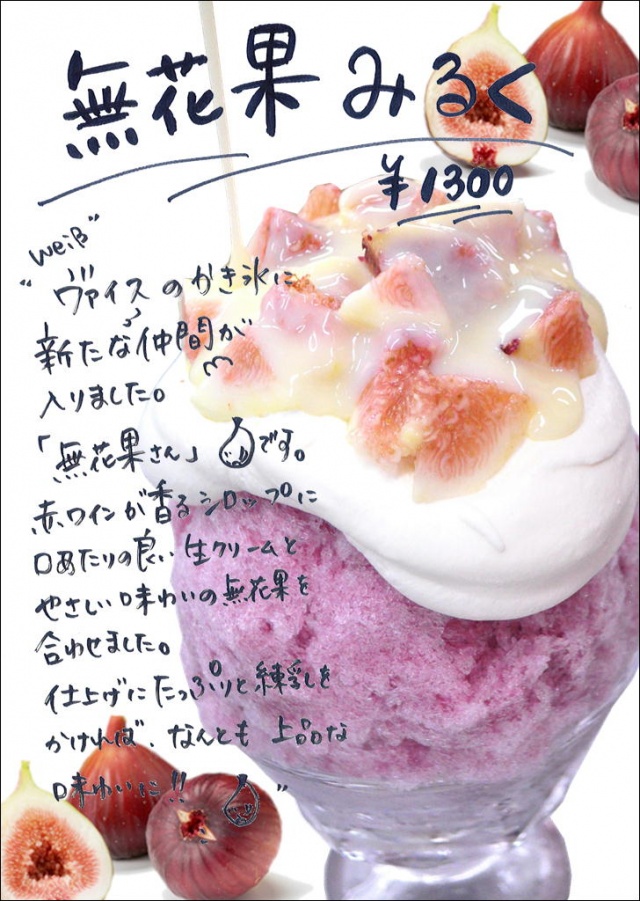 無花果みるく
¥1300
"weiß"
ヴァイスのかき氷に
新たな仲間が
入りました。
「無花果さん」です。
赤ワインが香るシロップに
口あたりの良い生クリームと
やさしい味わいの無花果を
合わせました。
仕上げにたっぷりと練乳を
かければ、なんとも上品な
味わいに!!"